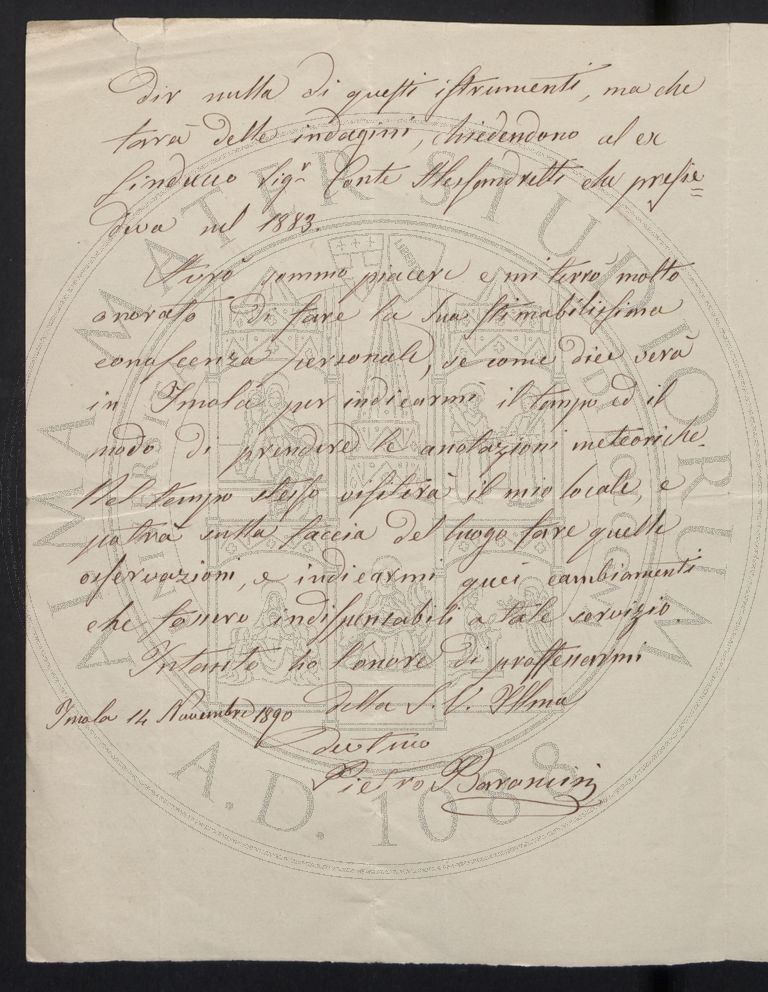 dir nulla di questi istrumenti, ma che
farrà delle indagini, chiedendono al ex
Sindaco Sigr Conte Alessandretti che presie=
deva nel 1883.
Avrò sommo piacere e mi terrò molto
onorato di fare la sua stimabilissima
conoscenza personale, se come dice verà
in Imola per indicarmi il tempo ed il
modo di prendere le anotazioni meteoriche.
Nel tempo stesso visiterà il mio locale, e
potrà sulla faccia del luogo fare quelle
osservazioni, e indicarmi quei cambiamenti
che fossero indispensabili a tale servizio.
Intanto ho l'onore di proffessarmi
della S. V. Illma
Imola 14 Novembre 1890
devotmo
Pietro Baroncini
ALMA MATER STUDIORUM
A.D. 1088